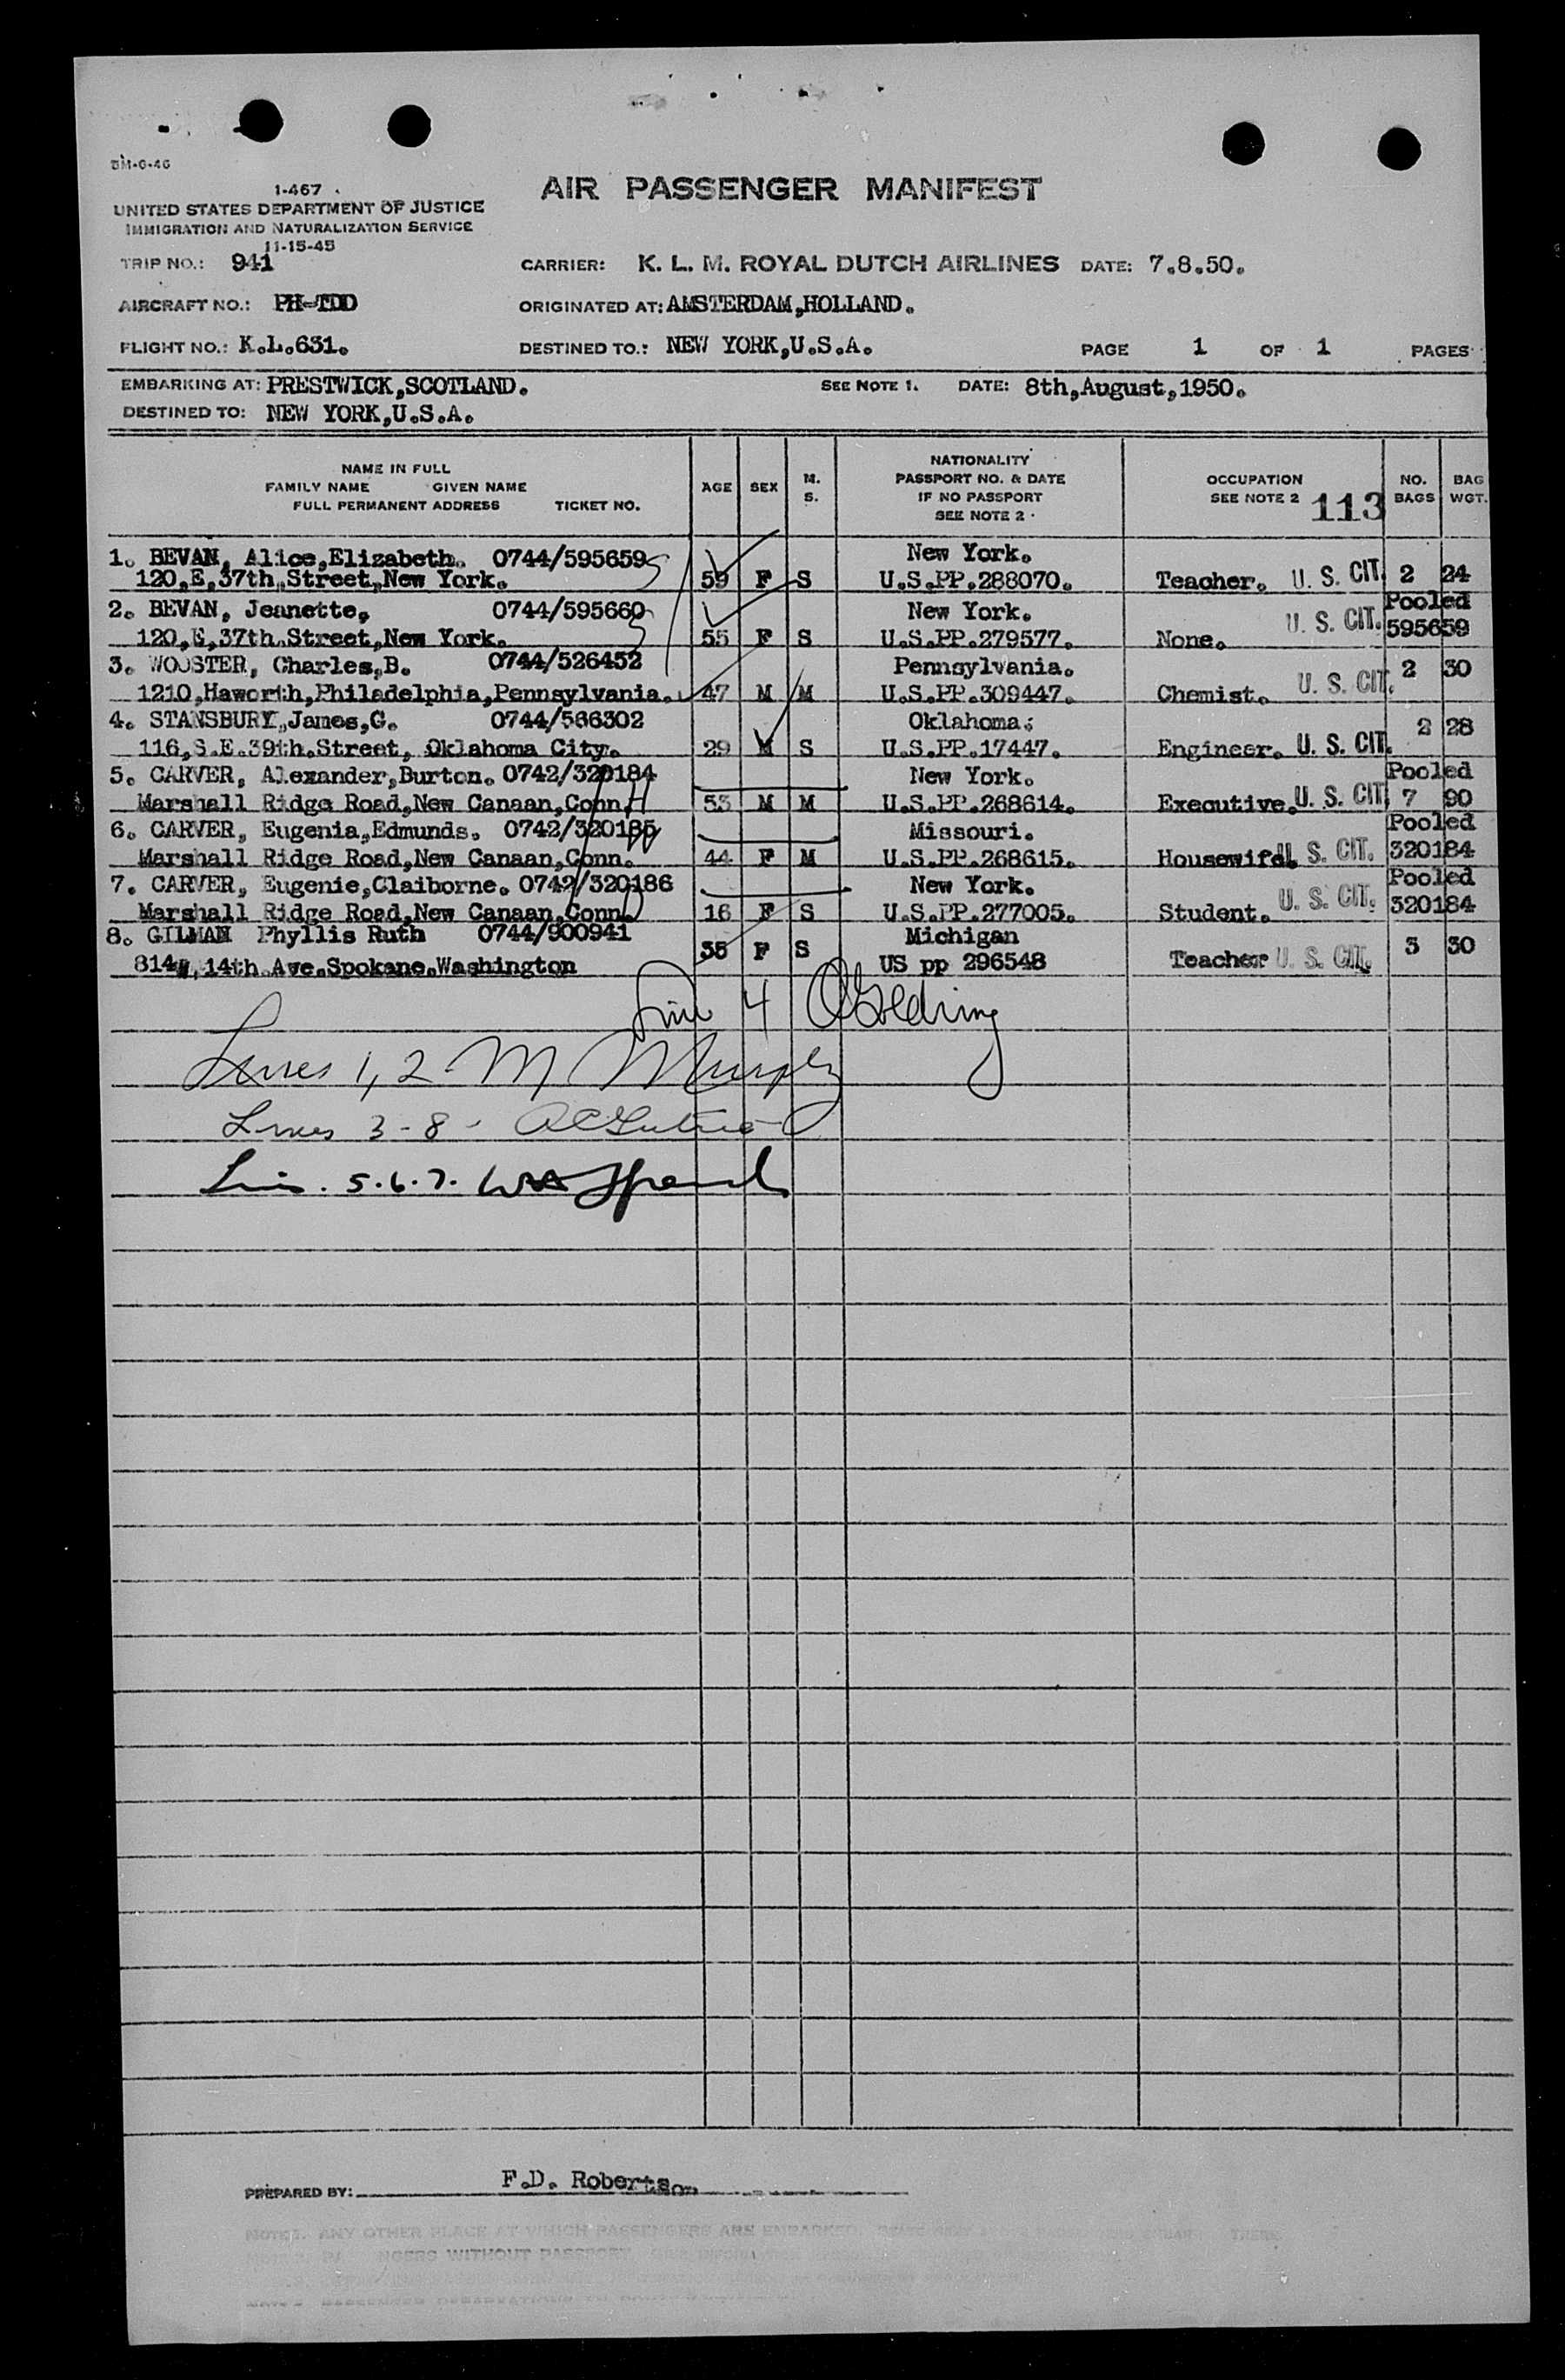 BM-6-46
1-467
UNITED STATES DEPARTMENT OF JUSTICE
IMMIGRATION AND NATURALIZATION SERVICE
11-15-45
AIR PASSENGER MANIFEST
TRIP NO.: 941 CARRIER: K. L. M. ROYAL DUTCH AIRLINES DATE: 7.8.50.
AIRCRAFT NO.: PH-TDD ORIGINATED AT: AMSTERDAM,HOLLAND.
FLIGHT NO.: K.L.631. DESTINED TO.: NEW YORK,U.S.A. PAGE 1 OF 1 PAGES
EMBARKING AT: PRESTWICK,SCOTLAND. SEE NOTE 1. DATE: 8th,August,1950.
DESTINED TO: NEW YORK,U.S.A.
NAME IN FULL
FAMILY NAME GIVEN NAME
FULL PERMANENT ADDRESS TICKET NO.
AGE SEX M. S.
NATIONALITY
PASSPORT NO. & DATE
IF NO PASSPORT
SEE NOTE 2
OCCUPATION
SEE NOTE 2 113
NO. BAGS
BAG WGT.
1. BEVAN, Alice,Elizabeth. 0744/595659 New York.
120,E,37th,Street,New York. 59 F S U.S.PP.288070. Teacher. U. S. CIT. 2 24
2. BEVAN, Jeanette, 0744/595660 New York. U. S. CIT. Pooled
120,E,37th.Street,New York. 55 F S U.S.PP.279577. None. 595659
3. WOOSTER, Charles,B. 0744/526452 Pennsylvania. 2 30
1210,Haworth,Philadelphia,Pennsylvania. 47 M M U.S.PP.309447. Chemist. U. S. CIT.
4. STANSBURY,James,G. 0744/586302 Oklahoma. 2 28
116,S.E.39th.Street, Oklahoma City. 29 M S U.S.PP.17447. Engineer. U. S. CIT.
5. CARVER, Alexander,Burton. 0742/320184 New York. Pooled
Marshall Ridge Road,New Canaan,Conn. 53 M M U.S.PP.268614. Executive. U. S. CIT. 7 90
6. CARVER, Eugenia,Edmunds. 0742/320185 Missouri. Pooled
Marshall Ridge Road,New Canaan,Conn. 44 F M U.S.PP.268615. Housewife. U. S. CIT. 320184
7. CARVER, Eugenie,Claiborne. 0742/320186 New York. Pooled
Marshall Ridge Road,New Canaan,Conn. 16 F S U.S.PP.277005. Student. U. S. CIT. 320184
8. GILMAN Phyllis Ruth 0744/900941 Michigan
814, 14th.Ave.Spokane.Washington 35 F S US pp 296548 Teacher U. S. CIT. 3 30
Line 4 Golding
Lines 1, 2 - M Murphy
Lines 3 - 8 -
5.6.7.
PREPARED BY: F.D. Robertson
ANY OTHER PLACE AT WHICH PASSENGERS ARE EMBARKED
WITHOUT PASSPORT